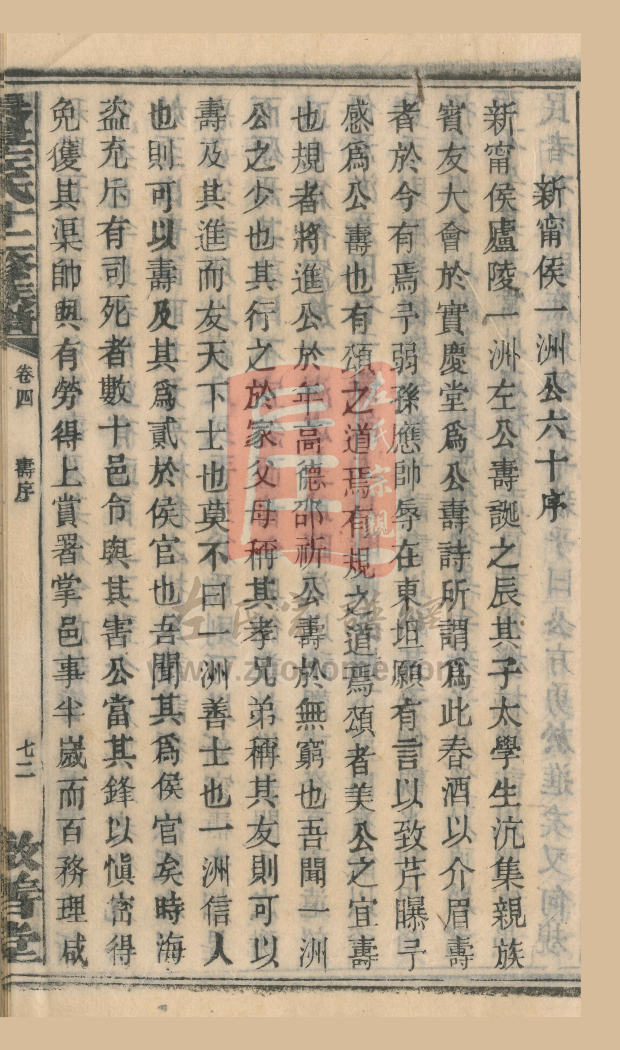 新甯侯一洲公六十序
新甯侯廬陵一洲左公壽誕之辰其子太學生沆集親族
賓友大會於寶慶堂爲公壽詩所謂爲此春酒以介眉壽
者於今有焉予弱孫應帥辱在東坦願有言以致芹曝予
感爲公壽也有頌之道焉有規之道焉頌者美公之宜壽
也規者將進公於年高德邵祈公壽於無窮也吾聞一洲
公之少也其行之於家父母稱其孝兄弟稱其友則可以
壽及其進而友天下士也莫不曰一洲善士也一洲信人
也則可以壽及其爲貳於侯官也吾聞其爲侯官矣時海
盜充斥有司死者數十邑令與其害公當其鋒以慎密得
免獲其渠帥與有勞得上賞署掌邑事半歲而百務理咸
左氏十二修族譜
卷四
壽序
七二
敦善堂
左氏宗親
www.zuojiahome.com